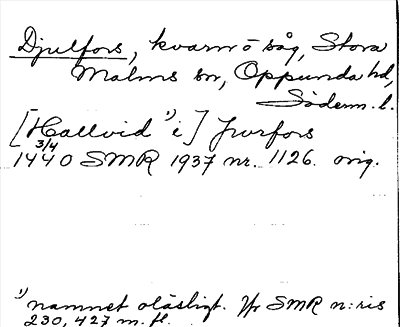 Djulfors, kvarn o såg, Stora
Malms sn, Oppunda hd,
Söderm. l.
[Hallvid ¹) i] Jwrfors
3/4
1440 SMR 1937 nr. 1126. orig.
¹) namnet oläsligt. Jfr SMR n:ris
230, 427 m. fl.